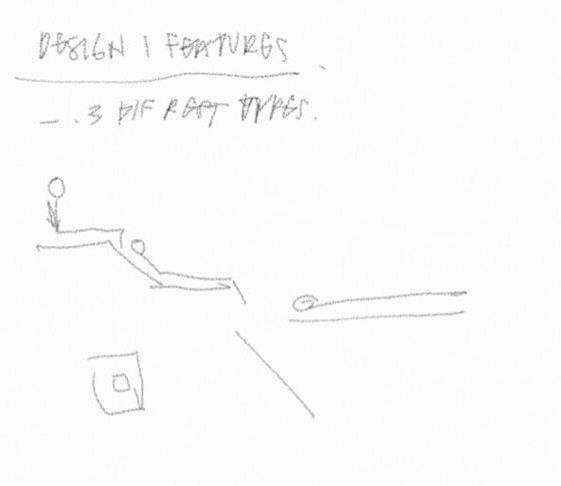 DESIGN 1 FEATURES
- .3 DIF REST TYPES.